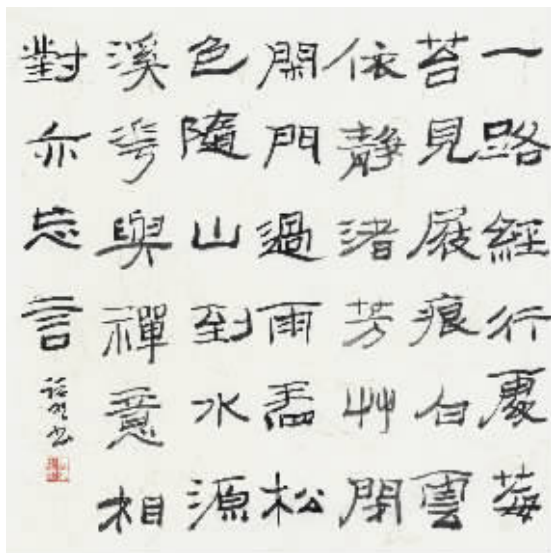 一路經行處莓
苔見屐痕白雲
依靜渚芳艸閉
閑門過雨看松
色隨山到水源
溪花與禪意相
對亦忘言
書